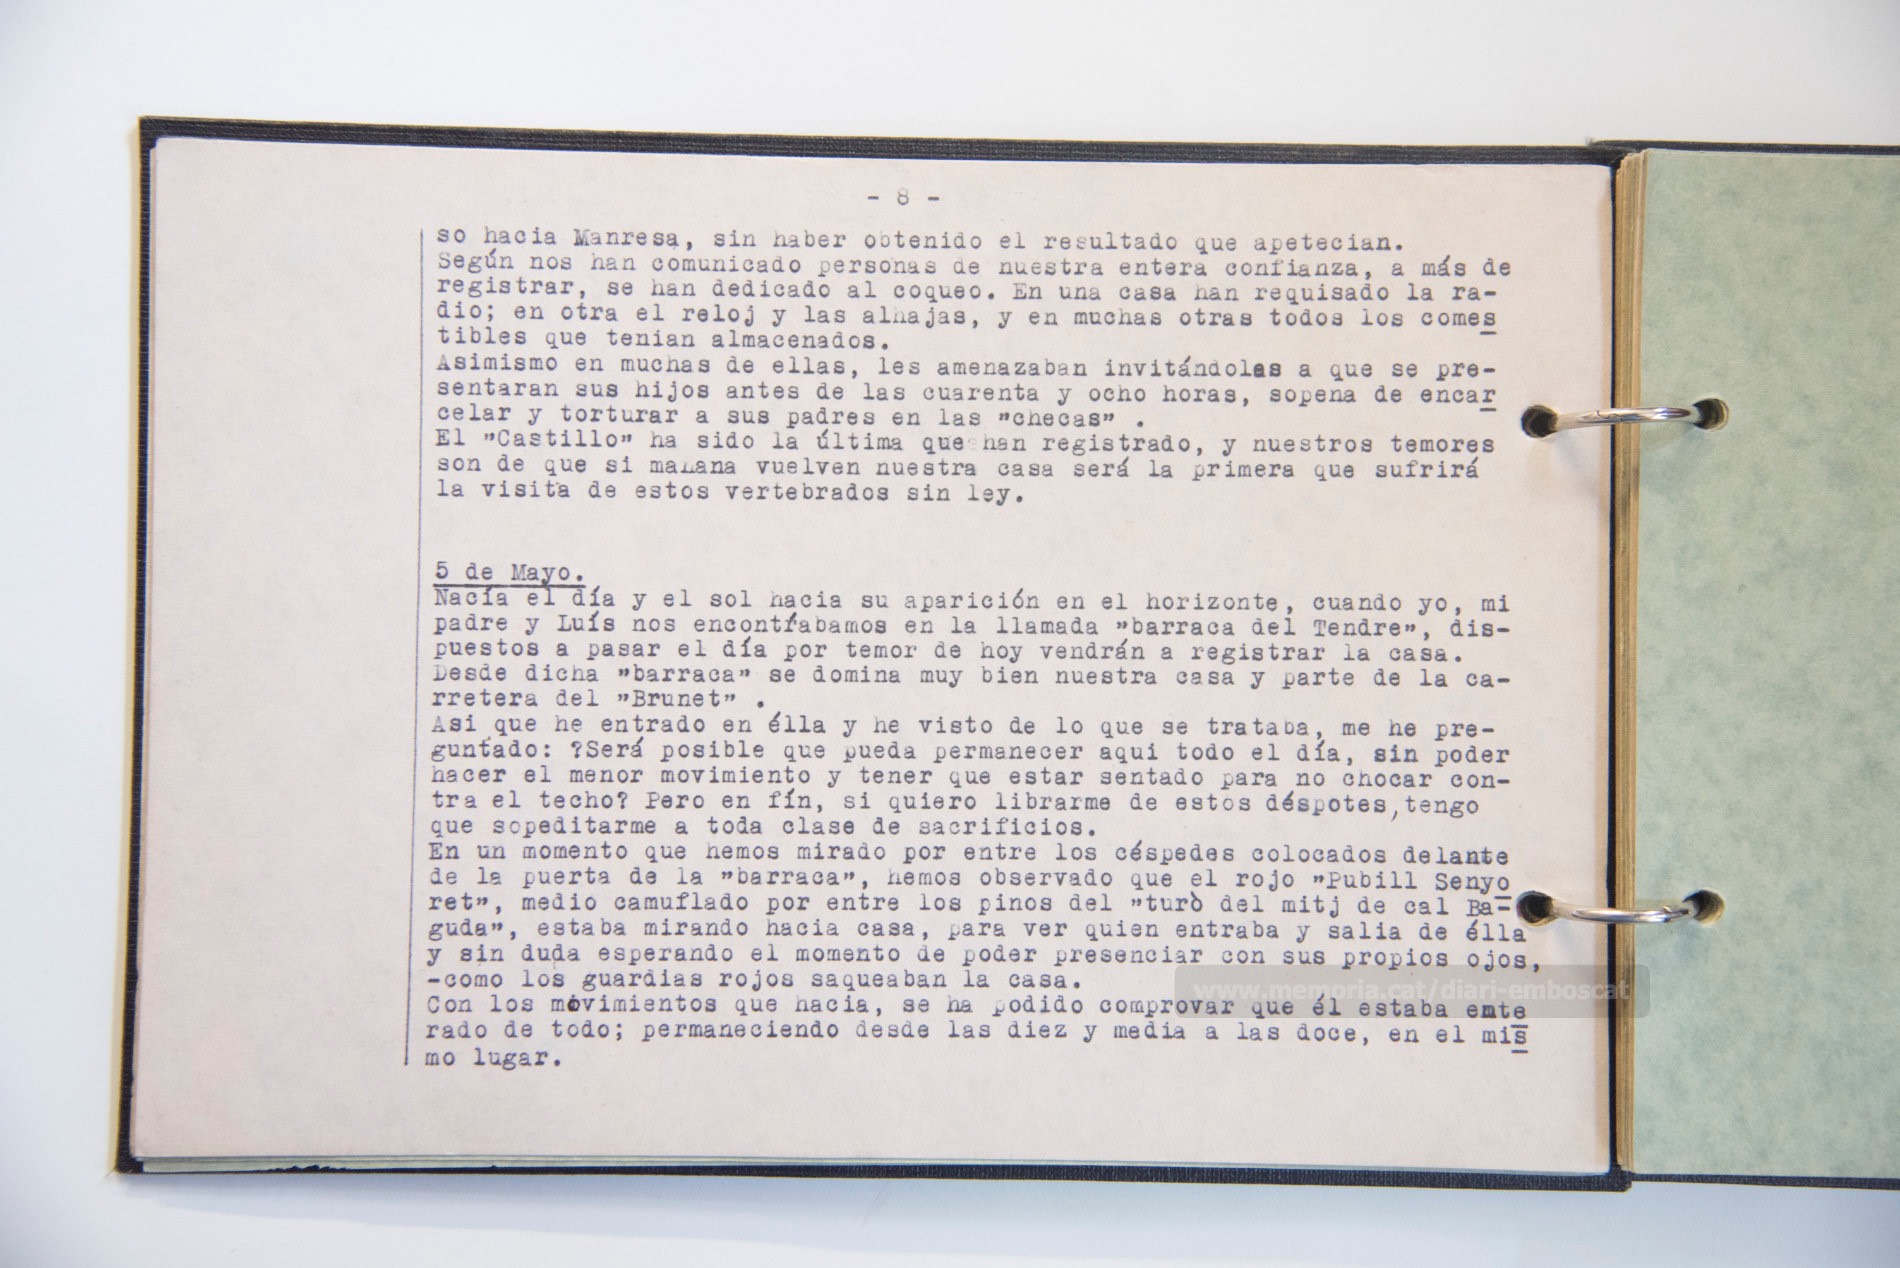 - 8 -
so hacia Manresa, sin haber obtenido el resultado que apetecian.
Según nos han comunicado personas de nuestra entera confianza, a más de
registrar, se han dedicado al coqueo. En una casa han requisado la ra-
dio; en otra el reloj y las alhajas, y en muchas otras todos los comes
tibles que tenian almacenados.
Asimismo en muchas de ellas, les amenazaban invitándoles a que se pre-
sentaran sus hijos antes de las cuarenta y ocho horas, sopena de encar
celar y torturar a sus padres en las "checas" .
El "Castillo" ha sido la última que han registrado, y nuestros temores
son de que si mañana vuelven nuestra casa será la primera que sufrirá
la visita de estos vertebrados sin ley.
5 de Mayo.
Nacía el día y el sol hacia su aparición en el horizonte, cuando yo, mi
padre y Luís nos encontrábamos en la llamada "barraca del Tendre", dis-
puestos a pasar el día por temor de hoy vendrán a registrar la casa.
Desde dicha "barraca" se domina muy bien nuestra casa y parte de la ca-
rretera del "Brunet" .
Asi que he entrado en élla y he visto de lo que se trataba, me he pre-
guntado: ?Será posible que pueda permanecer aqui todo el día, sin poder
hacer el menor movimiento y tener que estar sentado para no chocar con-
tra el techo? Pero en fín, si quiero librarme de estos déspotes,tengo
que sopeditarme a toda clase de sacrificios.
En un momento que hemos mirado por entre los céspedes colocados delante
de la puerta de la "barraca", hemos observado que el rojo "Pubill Senyo
ret", medio camuflado por entre los pinos del "turò del mitj de cal Ba-
guda", estaba mirando hacia casa, para ver quien entraba y salia de élla
y sin duda esperando el momento de poder presenciar con sus propios ojos,
-como los guardias rojos saqueaban la casa.
Con los movimientos que hacia, se ha podido comprovar que él estaba ente
rado de todo; permaneciendo desde las diez y media a las doce, en el mis
mo lugar.
www.memoria.cat/diari-emboscat